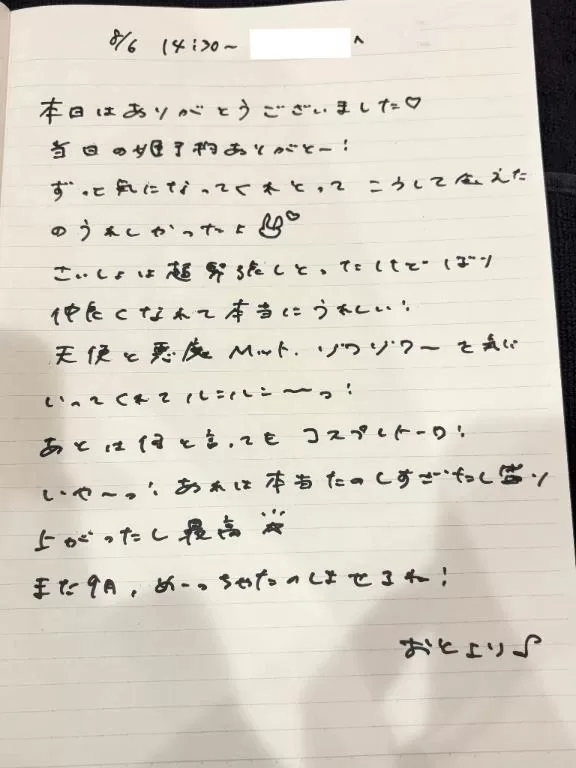 8/6 14:20~ へ
本日はありがとうございました♡
当日の姫予約ありがとー!
ずっと気になってくれとって こうして会えた
のうれしかったよ♡
さいしょは超緊張しとったけどばり
仲良くなれて本当にうれしい!
天使と悪魔 マット、ゾワゾワーを気に
いってくれてルンルン〜っ!
あとは何と言ってもコスプレトーク!
いや〜っ!あれは本当たのしすぎたし盛り
上がったし最高
また9月、めーっちゃたのしませるね!
おとより♪